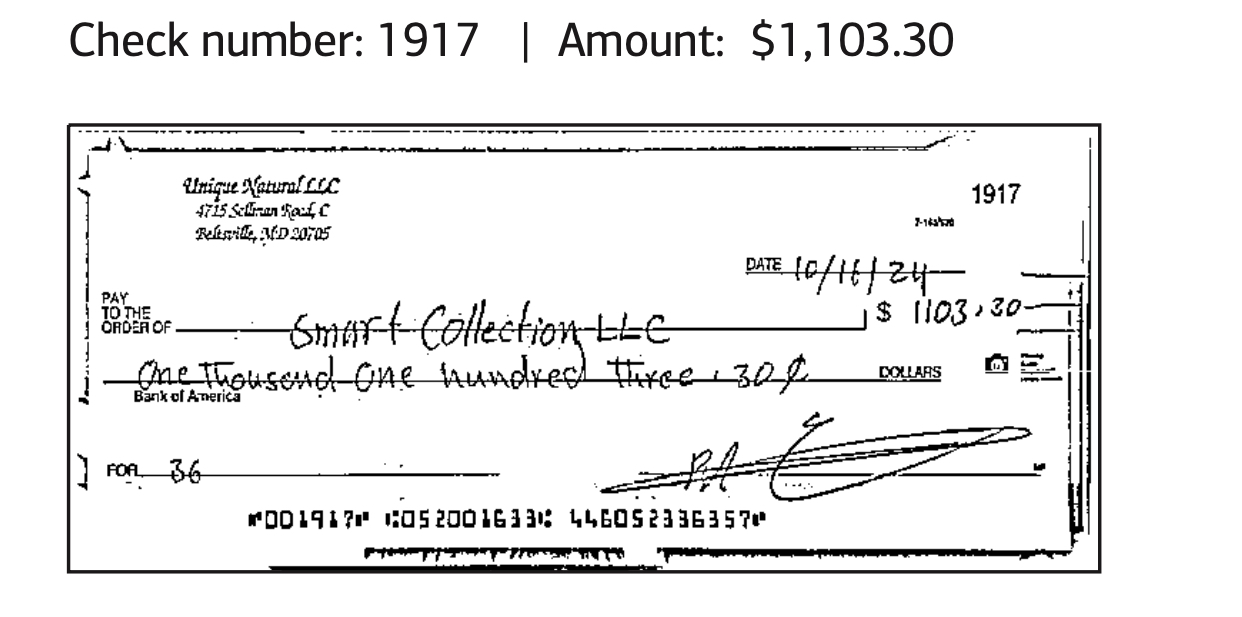 Check number: 1917 | Amount: $1,103.30
Unique Natural LLC
1917
4715 Sellman Road, C
Beltsville, MD 20705
DATE 10/16/24
PAY
TO THE
ORDER OF Smart Collection LLC $ 1103.30
One Thousand One hundred three . 30 ¢ DOLLARS
Bank of America
FOR 36
⑈001917⑈ ⑆052001633⑆ 446052336357⑈